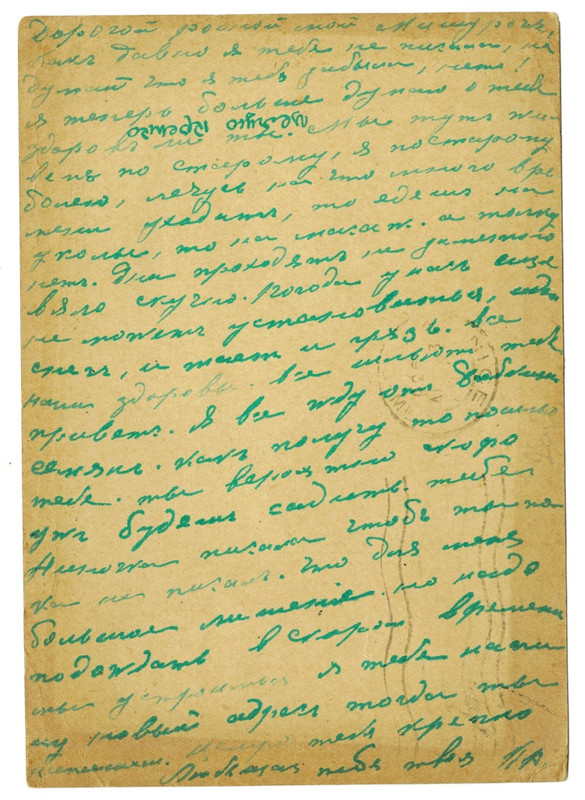 Дорогой родной мой Мишурочк,
какъ давно я тебе не писала, не
думай что я тебя забыла, нетъ!
я теперь больше думаю о тебе
здоровъ ли ты. Мы тутъ жи
вемъ по старому, я постарому
болею, лечусь на что много вре
мени уходитъ, то едешь на
уколы, то на масаж. а толку
нетъ. Дни проходятъ не заметно
вяло скучно. Погода у насъ еще
не можетъ установиться, идетъ
снегъ, и таетъ и грязь. все
наши здоровы. все шлютъ тебе
приветъ. Я все жду отъ бабушки
семянъ. какъ получу то пошлю
тебе. ты вероятно скоро
ужъ будешь садить тебе
Ниночка писала чтобъ ты по
ка не писалъ. Это для меня
большое лишение. но надо
подождать в скоромъ времени
мы устроиться я тебе напи
шу новый адресъ тогда ты
напишешь. Целую тебя крепко
Любящая тебя твоя